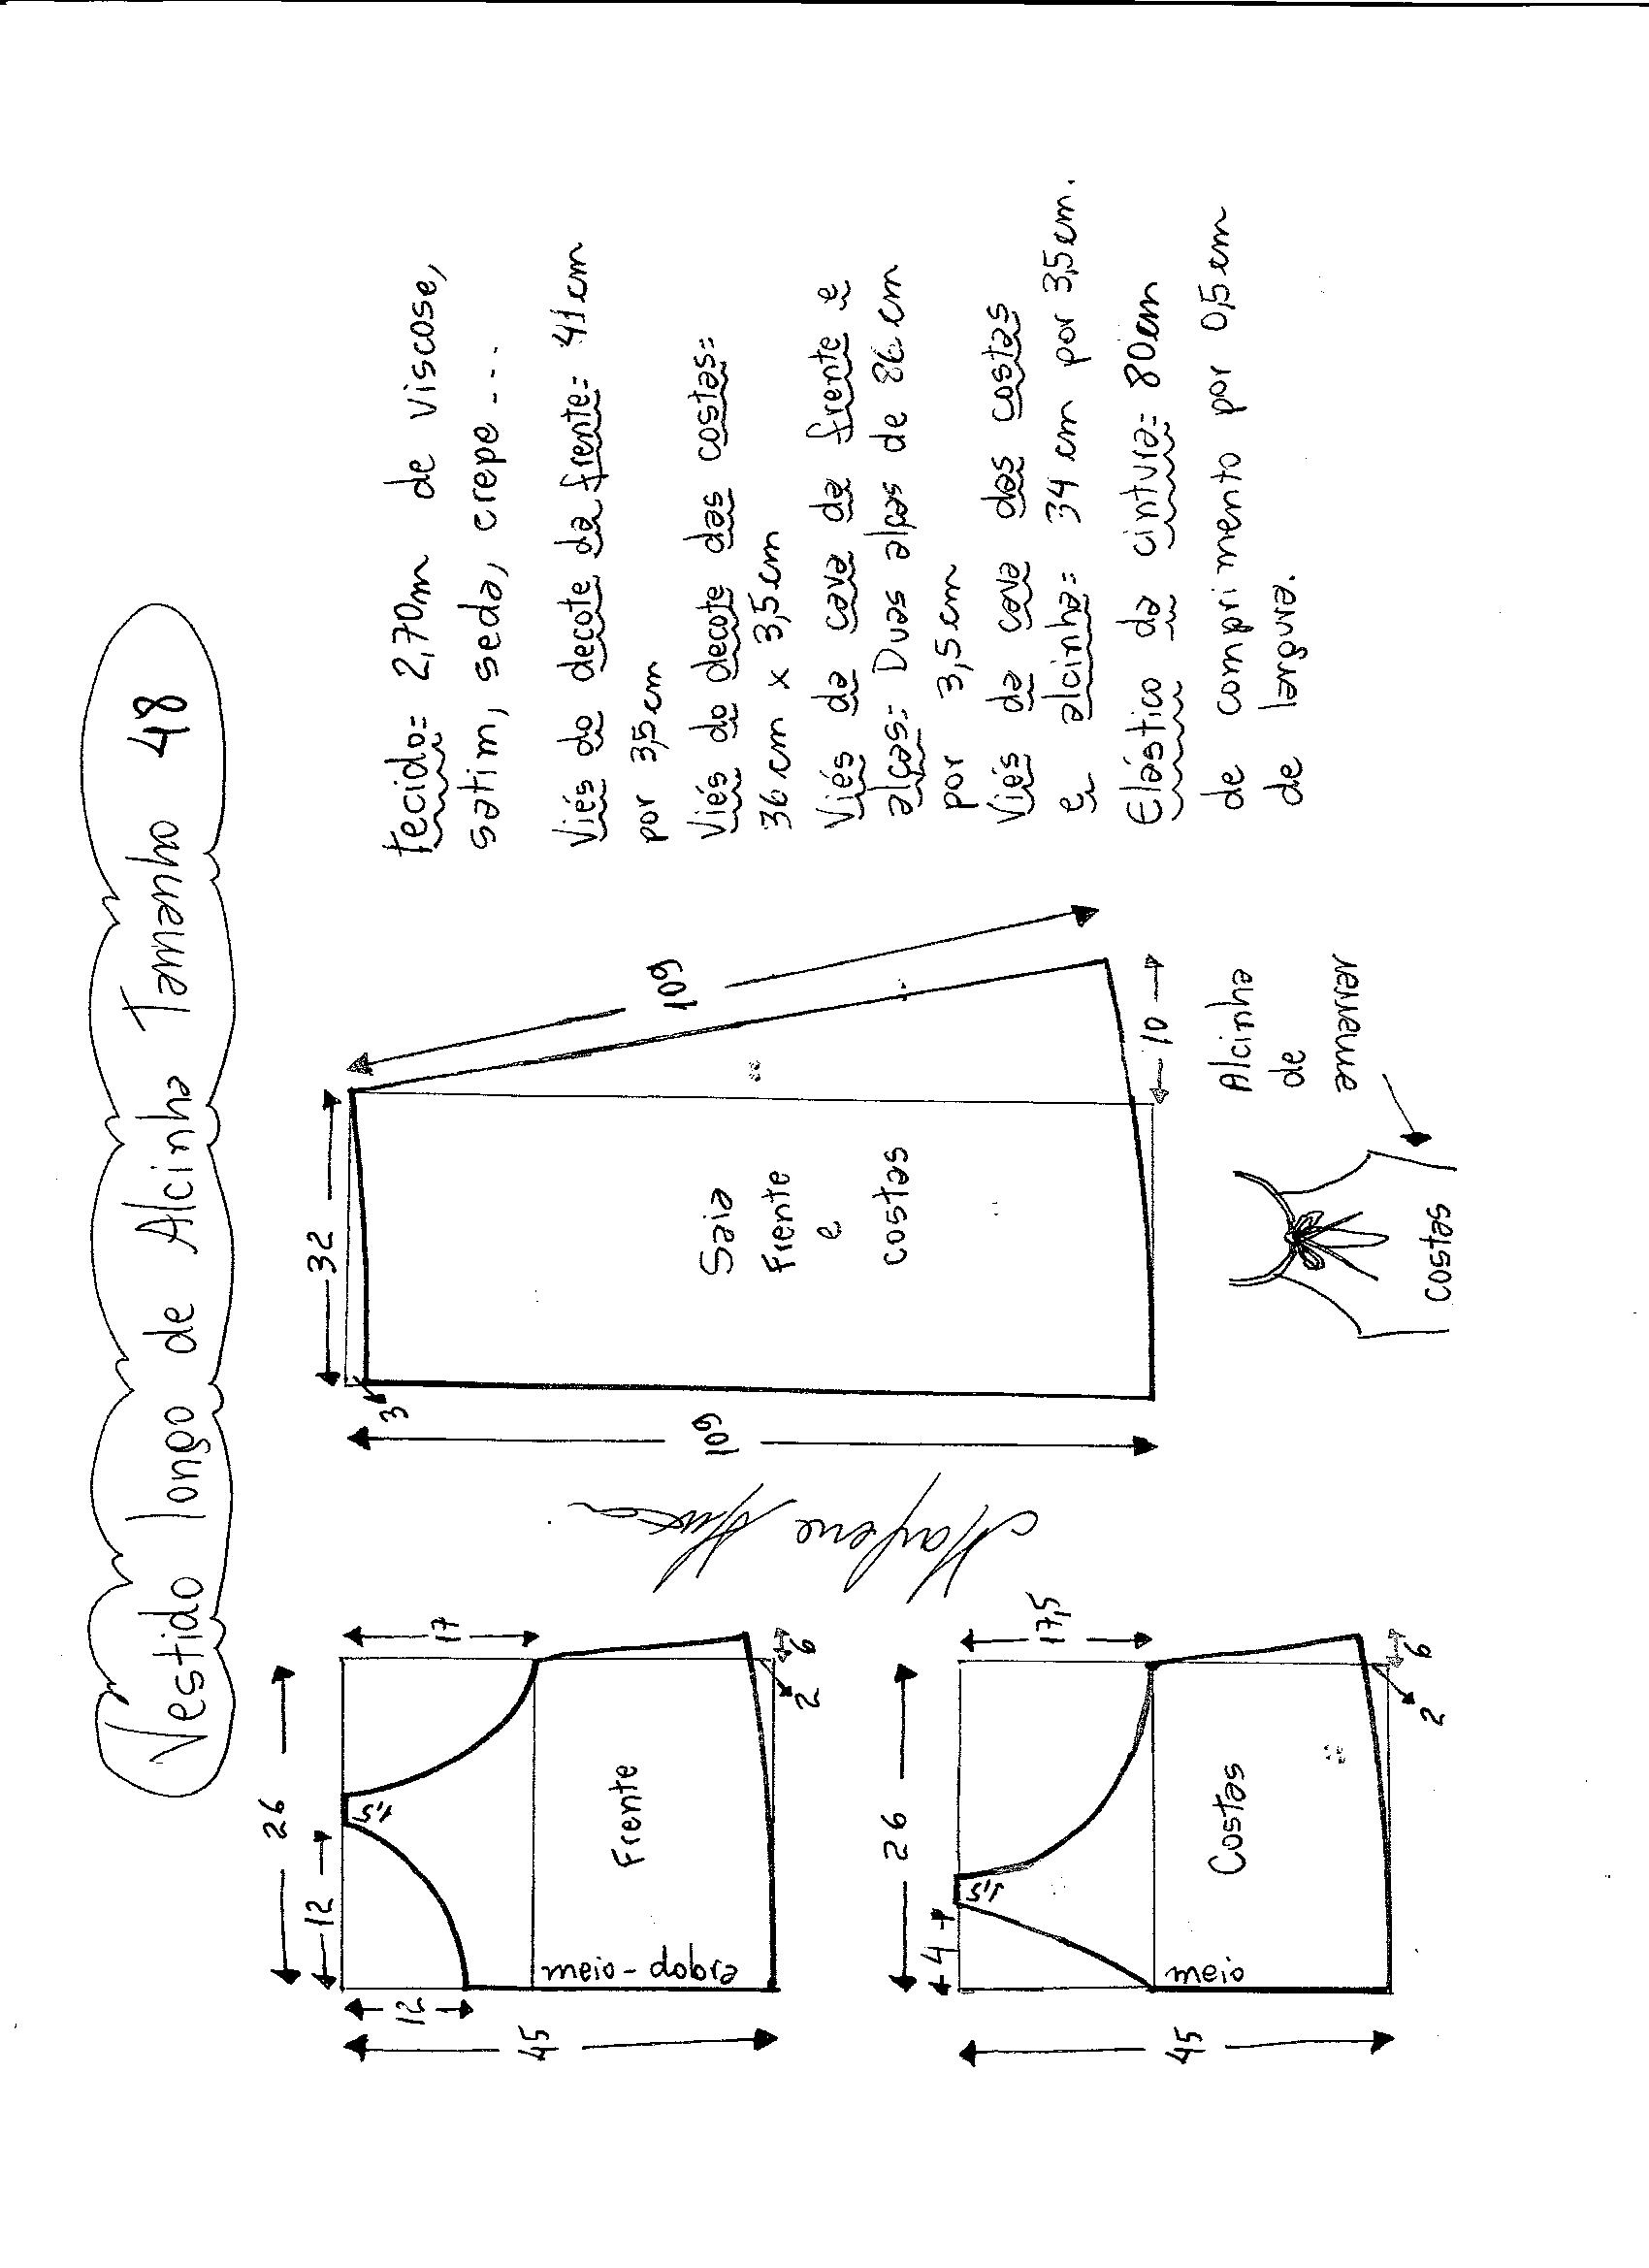 Vestido longo de Alcinha Tamanho 48
26
12
1,5
17
12
45
Frente
meio-dobra
2
6
26
4
1,5
17,5
45
Costas
meio
2
6
32
3
109
109
Saia
Frente
e
costas
10
Alcinha
de
amarrar
costas
tecido: 2,70m de viscose,
satim, seda, crepe....
Viés do decote da frente: 41cm
por 3,5cm
Viés do decote das costas:
36cm x 3,5cm
Viés da cava da frente e
alças: Duas alças de 86cm
por 3,5cm
Viés da cava das costas
e alcinha: 34 cm por 3,5cm.
Elástico da cintura: 80cm
de comprimento por 0,5cm
de largura.